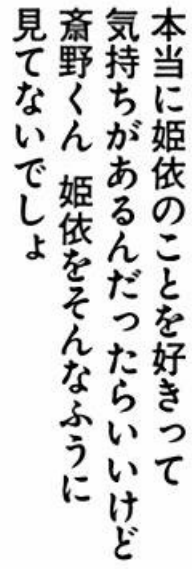 本当に姫依のことを好きって
気持ちがあるんだったらいいけど
斎野くん　姫依をそんなふうに
見てないでしょ